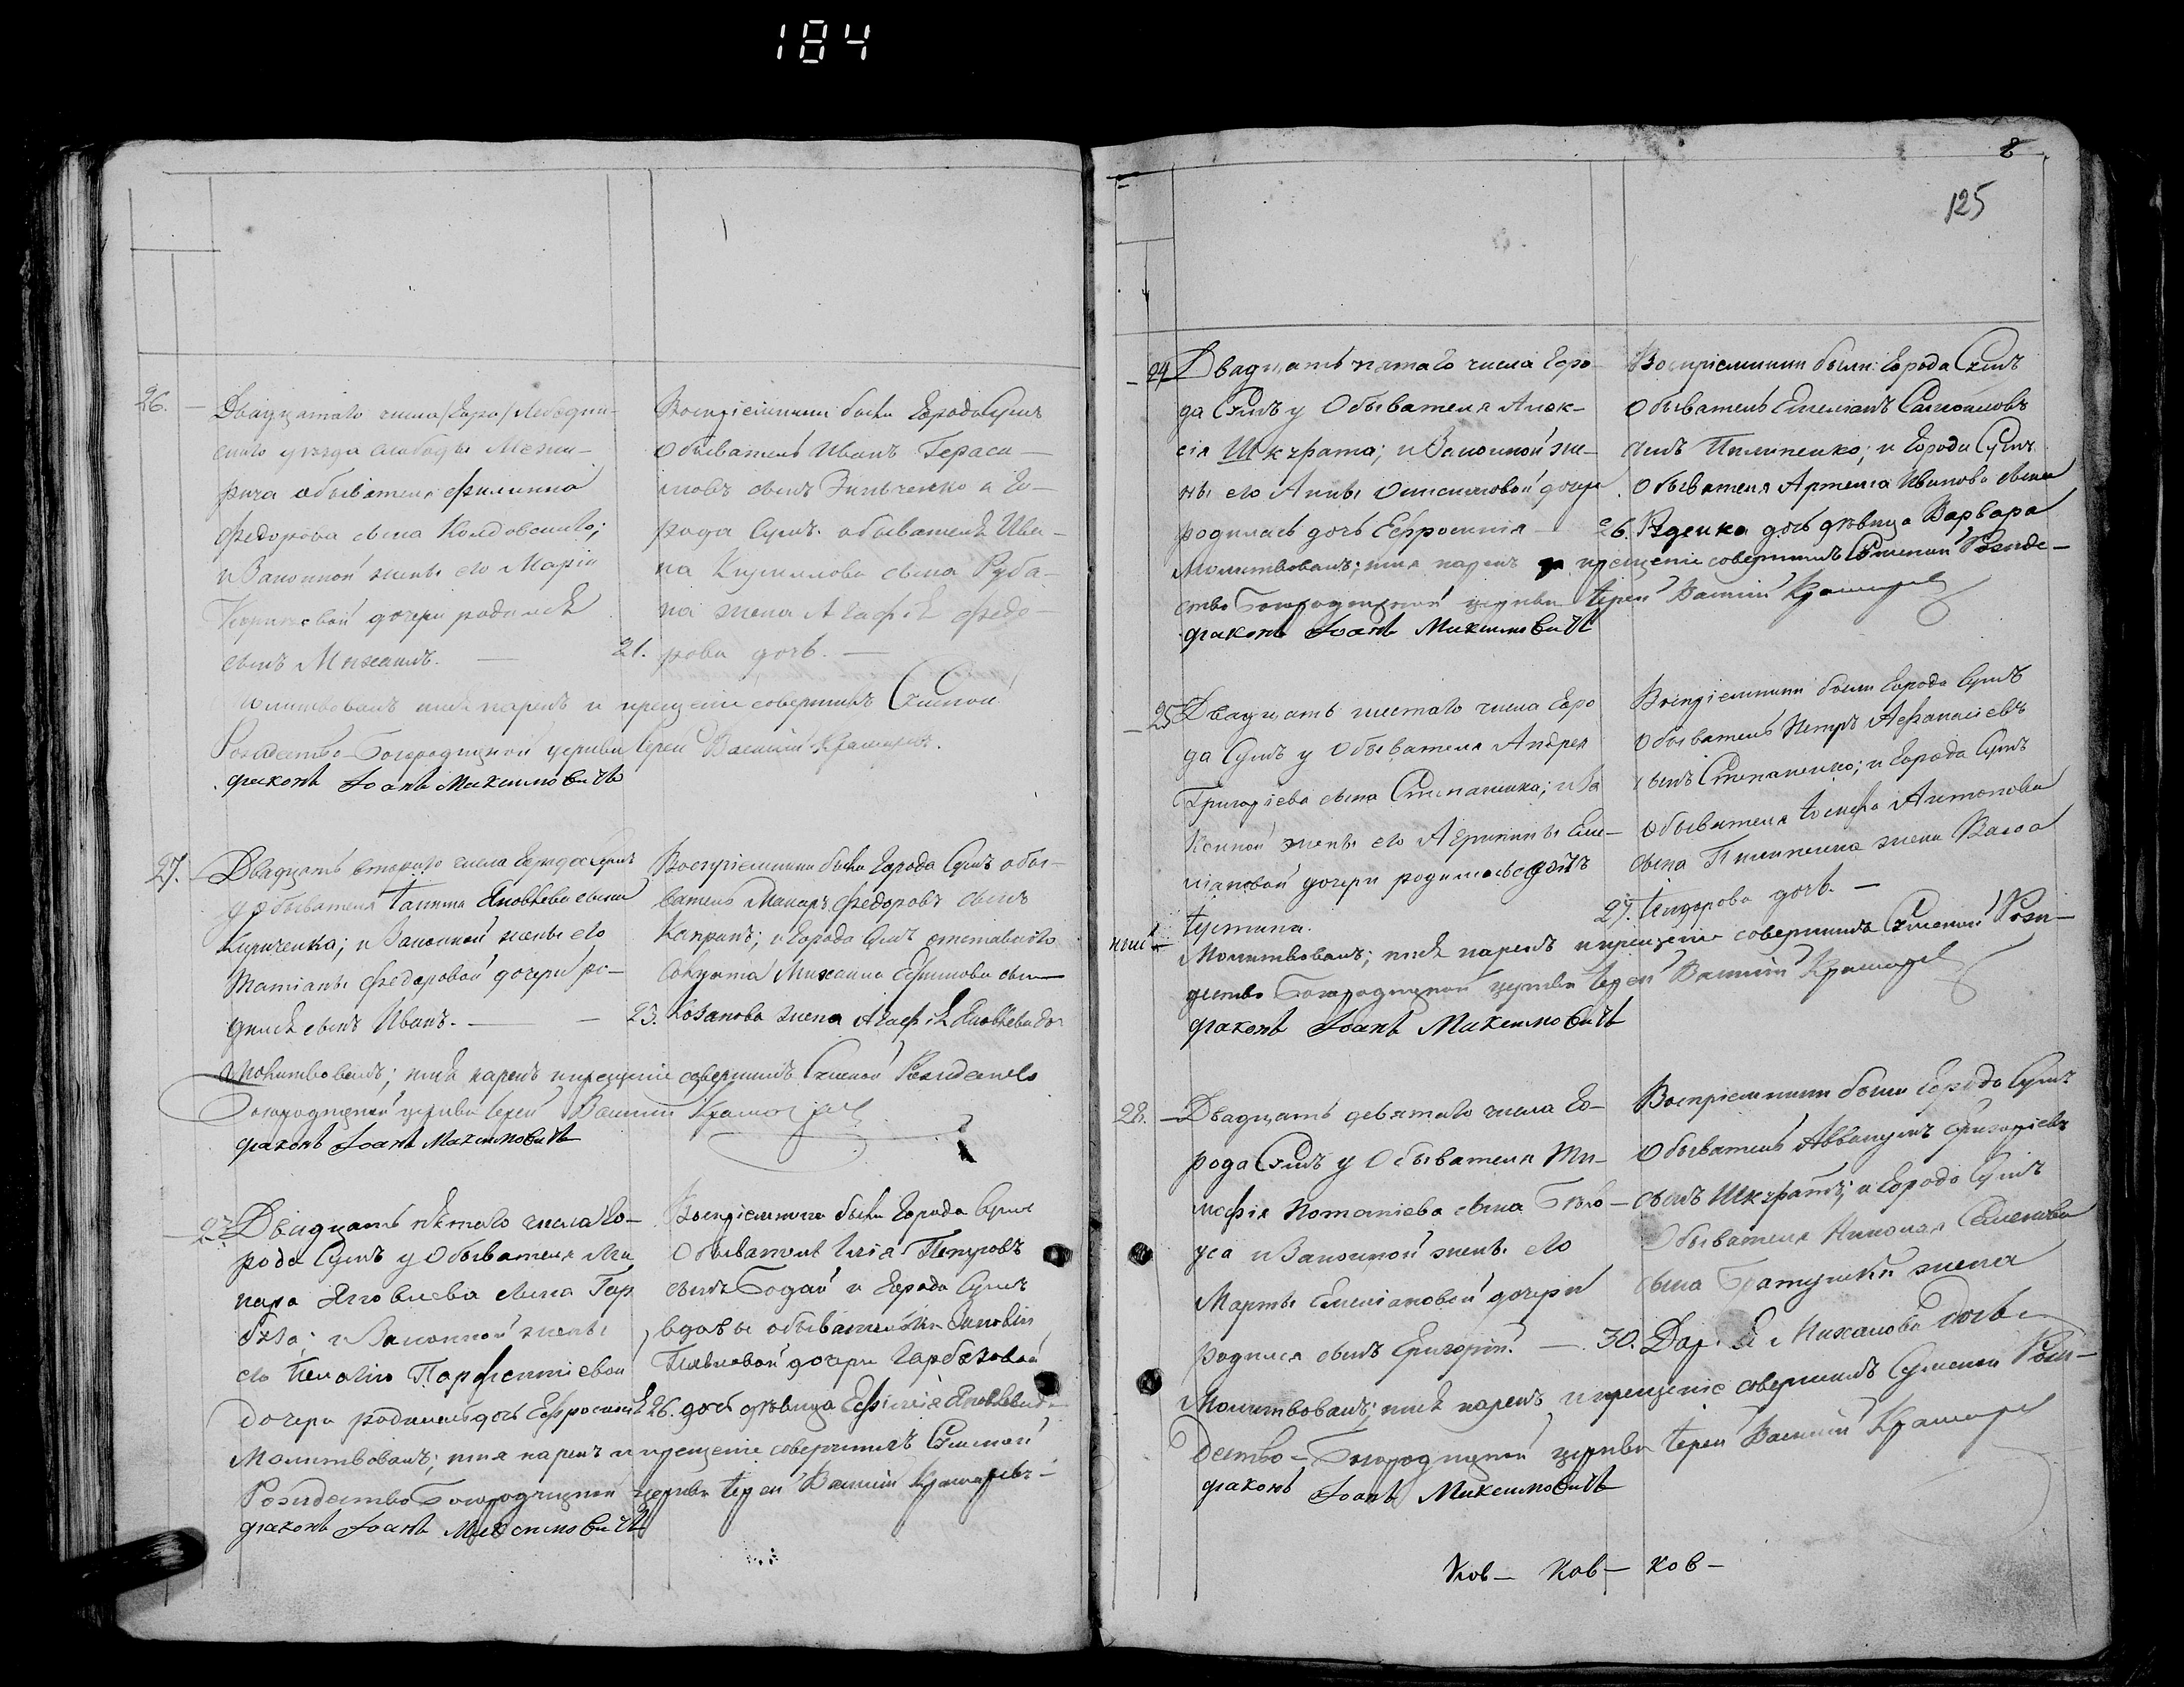 184
26. — Двадцатаго числа /Горо/ Лебедин-
скаго уѣзда слободы Межи-
рича обывателя Филиппа
Федорова сына Колдовскаго;
и Законной жены его Маріи
дочери родился
сынъ Михаилъ. —
Воспріемники были Города Сумъ
Обыватель Иванъ Гераси-
мовъ сынъ Зинченко и Го-
рода Сумъ обывателя Ива-
на Кирилова сына Руба-
на жена Агафія Федо-
21. рова дочь. —
Молитвовалъ имя нарекъ и крещеніе совершилъ Сумской
Рождество-Богородицкой церкви Іерей Василій Крамаревъ.
діаконъ Іоаннъ Максимовичъ
27. — Двадцать втораго числа Города Сумъ
у обывателя Яковлева сына
Кириченка; и Законной жены его
Татіаны Федоровой дочери ро-
дился сынъ Иванъ. — —
Воспріемники были Города Сумъ обы-
ватель Макаръ Федоровъ сынъ
и Города Сумъ отставнаго
Солдата Михаила Ефимова сына
23. Козакова жена Агафія Яковлева до
Молитвовалъ; имя нарекъ и крещеніе совершилъ Сумской Рождество
Богородицкой церкви Іерей Василій Крамаревъ
діаконъ Іоаннъ Максимовичъ
23. Двадцать пятаго числа Го-
рода Сумъ у Обывателя Ма
кара Яковлева сына Гар
буза; и Законной жены
его Парфентіевой
дочери родилась дочь Евфросинія
Воспріемники были Города Сумъ
Обыватель Илія Петровъ
сынъ Богдай и Города Сумъ
вдовы обывательки
Павловой дочери Гарбузовой
26. дочь дѣвица Евфимія Яковлева д
Молитвовалъ; имя нарекъ и крещеніе совершилъ Сумской
Рождество Богородицкой церкви Іерей Василій Крамаревъ —
діаконъ Іоаннъ Максимовичъ
8
125
— 24 Двадцать пятаго числа Горо-
да Сумъ у Обывателя Алек-
сія Шкурата; и Законной же-
ны его Анны Онисимовой дочери
родилась дочь Евфросинія —
Воспріемники были: Города Сумъ
Обыватель Емеліанъ Самойловъ
сынъ Пилипенко; и Города Сумъ
Обывателя Артема Иванова сына
26. дочь дѣвица Варвара
Молитвовалъ; имя нарекъ крещеніе совершилъ Сумской Рожде-
ство Богородицкой церкви Іерей Василій Крамаревъ
діаконъ Іоаннъ Максимовичъ
— 25 Двадцать шестаго числа Горо
да Сумъ у Обывателя Андрея
Григоріева сына Степаненка; и За
конной жены его Агрипины Еме-
ліановой дочери родилась дочь
Іустина.
Воспріемники были Города Сумъ
Обыватель Петръ Афанасіевъ
сынъ Степаненко; и Города Сумъ
обывателя Іосифа Антонова
сына Пилипенка жена
27. дочь. —
Молитвовалъ; имя нарекъ и крещеніе совершилъ Сумской Рож-
дество Богородицкой церкви Іерей Василій Крамаревъ
діаконъ Іоаннъ Максимовичъ
28. — Двадцать девятаго числа Го-
рода Сумъ у Обывателя Ти-
мофія Потапіева сына Бѣло-
уса и Законной жены его
Марты Емеліановой дочери
родился сынъ Григорій. —
Воспріемники были Города Сумъ
Обыватель Аввакумъ Григоріевъ
сынъ Шкуратъ; и Города Сумъ
Обывателя Николая Семенова
сына Братушки жена
30. Дарія Михайлова дочь
Молитвовалъ; имя нарекъ и крещеніе совершилъ Сумской Рож-
дество-Богородицкой церкви Іерей Василій Крамаревъ
діаконъ Іоаннъ Максимовичъ
Ков — Ков — Ков —